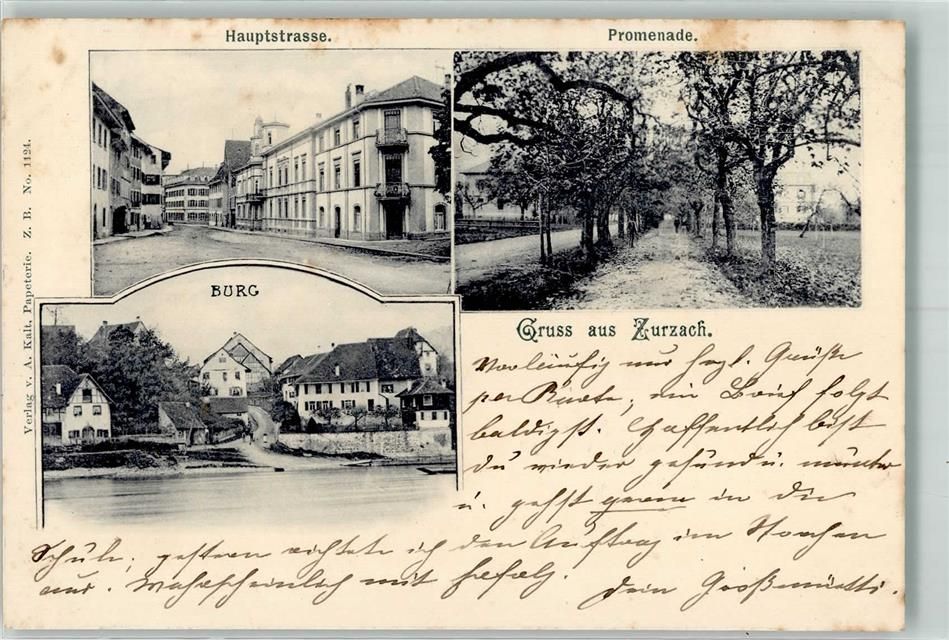 Hauptstrasse.
Promenade.
BURG
Verlag v. A. Kalt, Papeterie. Z. B. No. 1124.
Gruss aus Zurzach.
Vorläufig nur hzl. Grüße
per Karte, ein Brief folgt
baldigst. Hoffentlich bist
du wieder gesund u. munter
u. gehst gerne in die
Schule, gestern richtete ich den Auftrag im Storchen
aus. Wahrscheinlich mit
Dein Großmütti.